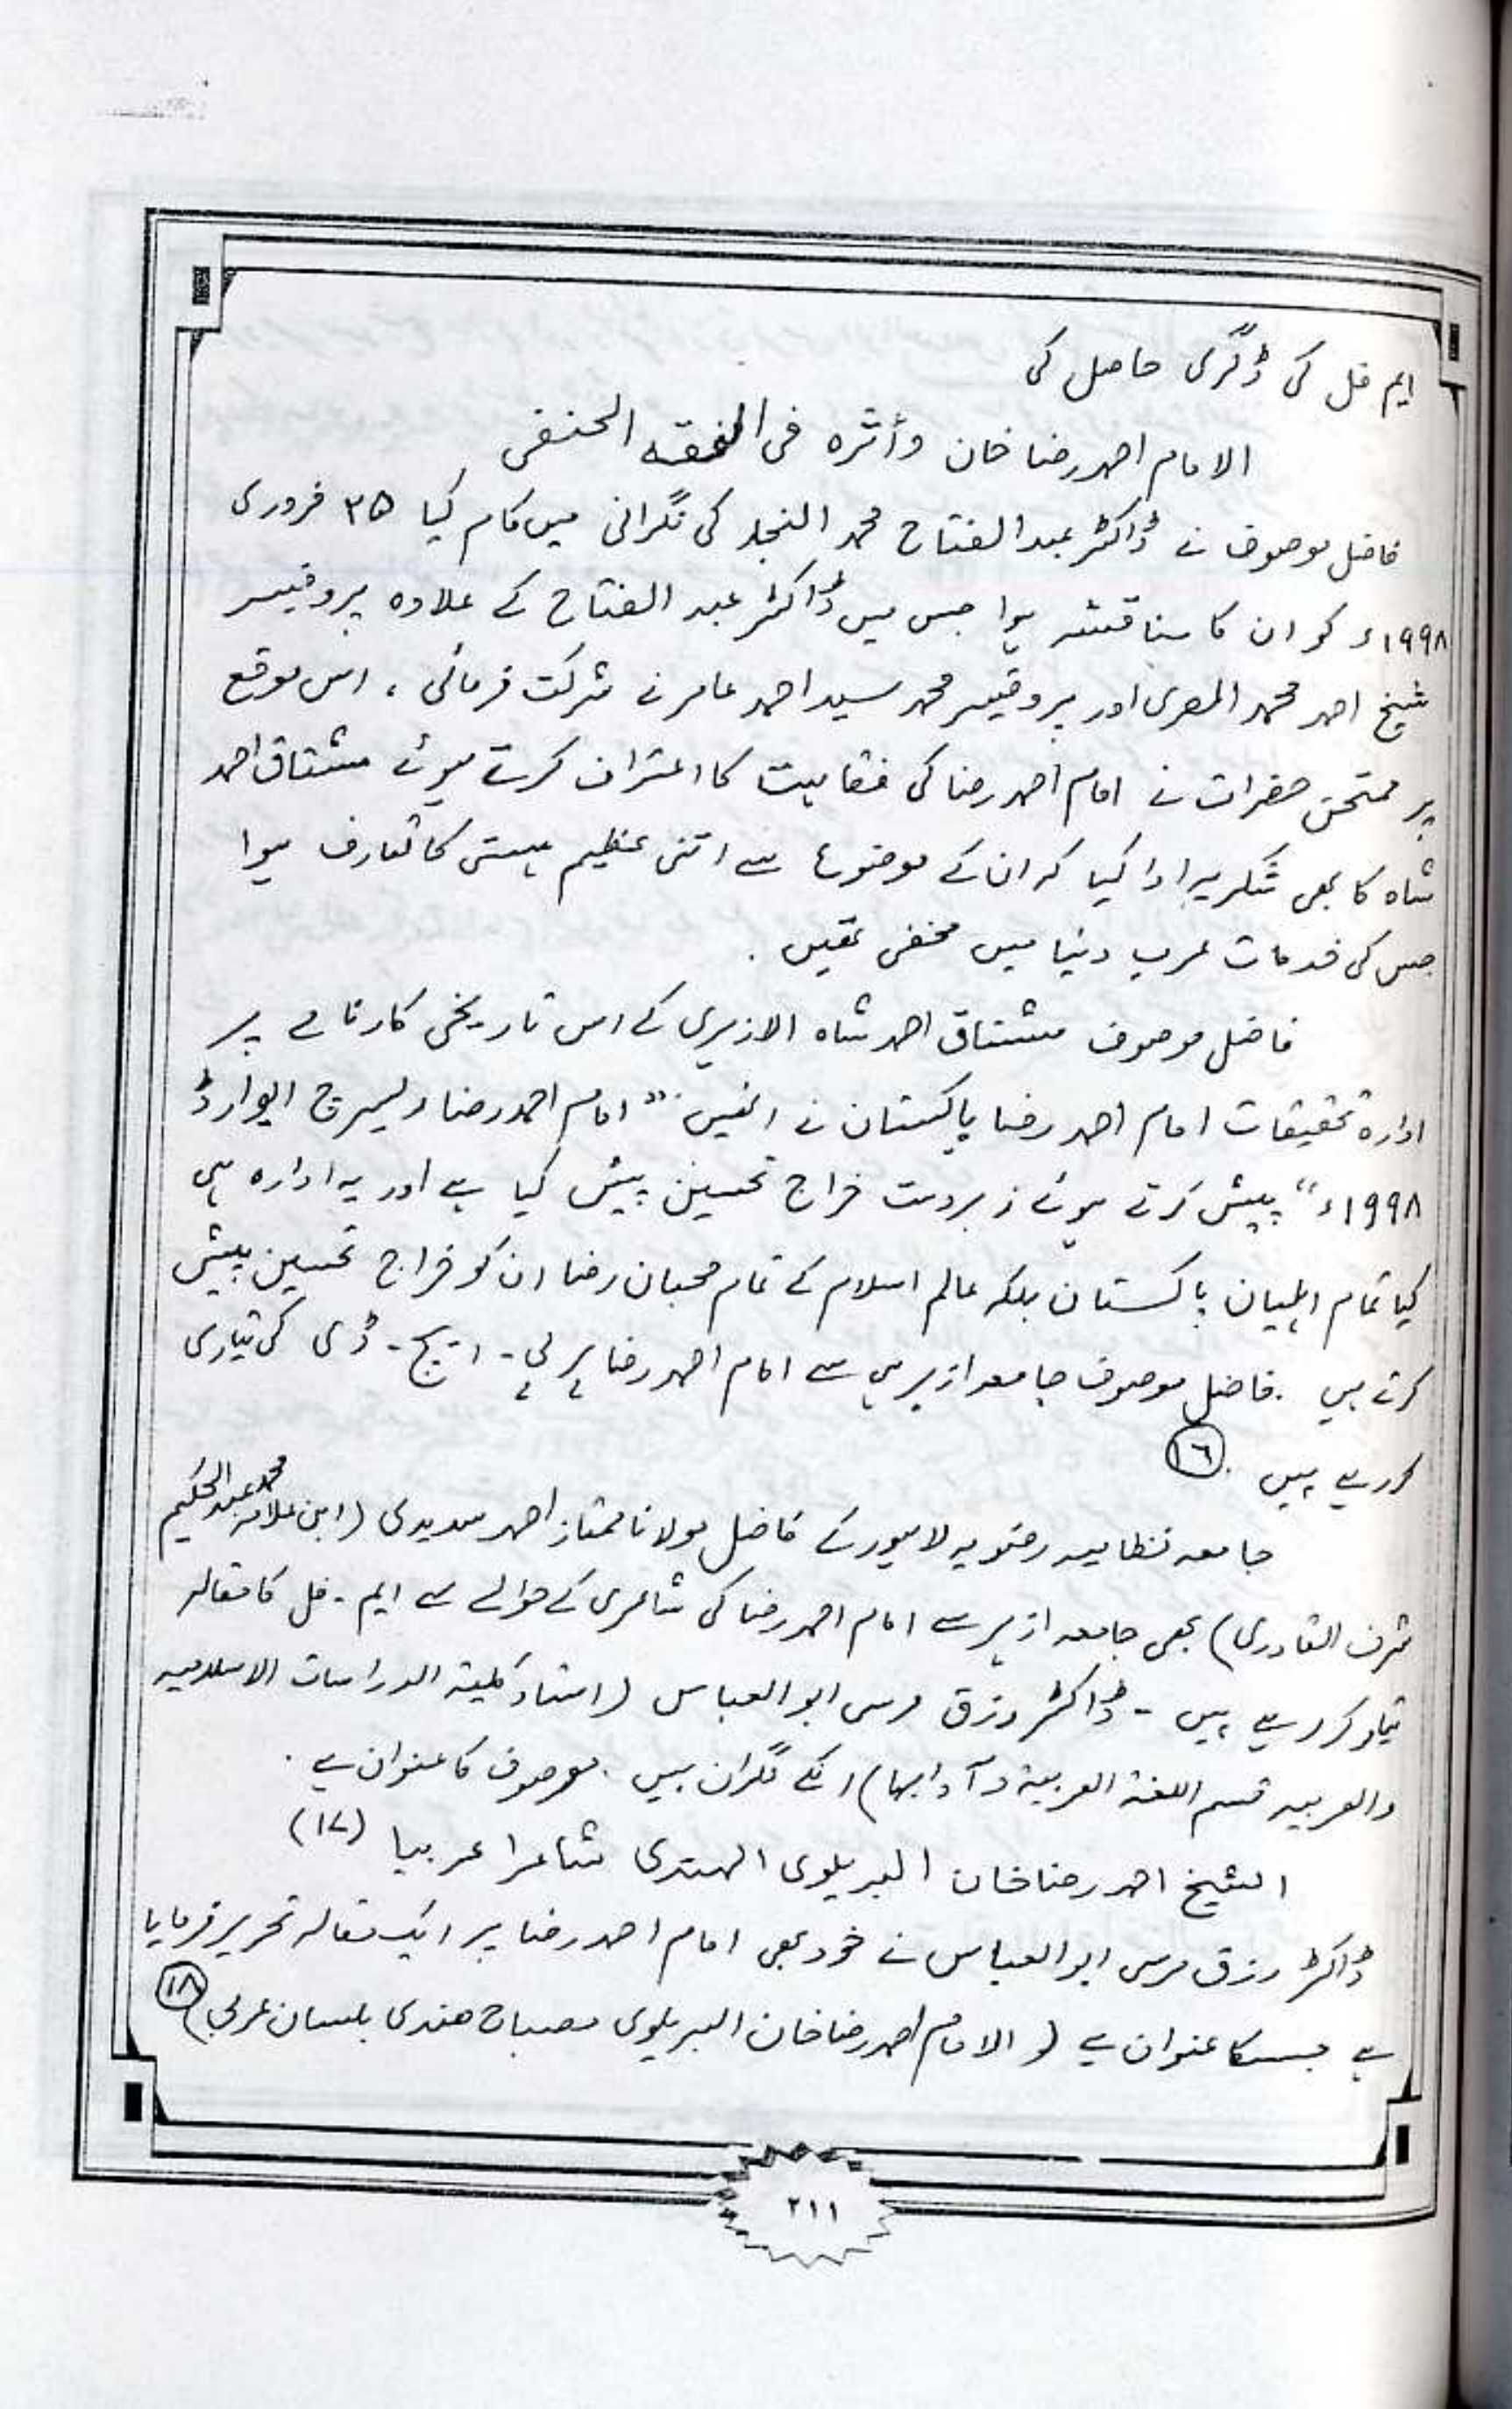 ایم فل کی ڈگری حاصل کی
الامام احمد رضا خان وأثره فی الفقه الحنفی
فاضل موصوف نے ڈاکٹر عبد الفتاح محمد النجار کی نگرانی میں کام کیا ۲۵ فروری
۱۹۹۸ء کو ان کا مناقشہ ہوا جس میں ڈاکٹر عبد الفتاح کے علاوہ پروفیسر
شیخ احمد محمد المصری اور پروفیسر محمد سید احمد عامر نے شرکت فرمائی ، اس موقع
پر ممتحن حضرات نے امام احمد رضا کی فقاہت کا اعتراف کرتے ہوئے مشتاق احمد
شاہ کا بھی شکریہ ادا کیا کہ ان کے موضوع سے اتنی عظیم ہستی کا تعارف ہوا
جس کی خدمات عرب دنیا میں مخفی تھیں .
فاضل موصوف مشتاق احمد شاہ الازہری کے اس تاریخی کارنامے پر
ادارۂ تحقیقات امام احمد رضا پاکستان نے انہیں "امام احمد رضا ریسرچ ایوارڈ
۱۹۹۸ء" پیش کرتے ہوئے زبردست خراج تحسین پیش کیا ہے اور یہ ادارہ ہی
کیا تمام اہلیان پاکستان بلکہ عالم اسلام کے تمام محبان رضا ان کو خراج تحسین پیش
کرتے ہیں . فاضل موصوف جامعہ ازہر ہی سے امام احمد رضا پر پی - ایچ - ڈی کی تیاری
کر رہے ہیں . (۱٦)
جامعہ نظامیہ رضویہ لاہور کے فاضل مولانا ممتاز احمد سدیدی (ابن علامہ محمد عبد الحکیم
شرف القادری) بھی جامعہ ازہر سے امام احمد رضا کی شاعری کے حوالے سے ایم - فل کا مقالہ
تیار کر رہے ہیں - ڈاکٹر رزق مرسی ابو العباس (استاذ کلیة الدراسات الاسلامیہ
والعربیہ قسم اللغة العربیة و آدابہا) انکے نگران ہیں . موصوف کا عنوان ہے .
الشیخ احمد رضا خان البریلوی الہندی شاعرا عربیا (۱۷)
ڈاکٹر رزق مرسی ابو العباس نے خود بھی امام احمد رضا پر ایک مقالہ تحریر فرمایا
ہے جسکا عنوان ہے (و الامام احمد رضا خان البریلوی مصباح هندی بلسان عربی) (۱۸)
۲۱۱